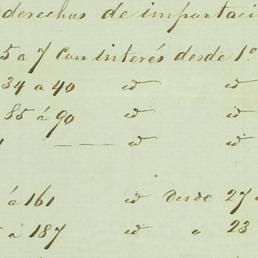 derechos de importaci
5 a 7 con interés desde 1º
34 a 40 id id
85 á 90 id id
— id id
á 161 id desde 27
á 187 id " 23